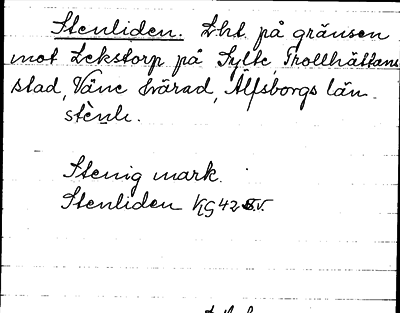 Stenliden. Lht. på gränsen
mot Lekstorp på Sylte, Trollhättans
stad, Väne härad, Älfsborgs län.
stènlı.
Stenig mark.
Stenliden KG 42 S.V.